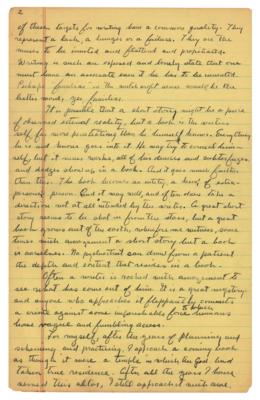 2
of these targets for writing have a common quality. They
represent a lack, a hunger or a failure. They are the
muses to be invited and flattered and propitiated.
Writing is such an exposed and lonely state that one
must have an associate even if he has to be invented.
Perhaps familiar in the witchcraft sense would be the
better word, yes familiar.
It is possible that a short story might be a piece
of observed external reality, but a book is the writer's
self, far more penetrating than he himself knows. Everything
he is and knows goes into it. He may try to conceal him-
self, but it never works, all of his devices and subterfuges
and dodges showing in a book. And it goes much further
than this. The book becomes an entity, a kind of
person. And it may, and often does take a
direction not at all intended by the writer. A great short
story seems to be shot in from the stars, but a great
book grows out of the earth,
times with arrangement a short story but a book
is ourselves. No psychiatrist can draw from a patient
the depth and content that resides in a book.
Often a writer is rocked with amazement to
see what has come out of him. It is a great mystery
and anyone who approaches it flippantly commits
a crime against some unspeakable force to which humans
have vague and fumbling access.
For myself, after the years of planning and
scheming and practicing, I approach a coming book
as though it were a temple in which the God had
taken true residence. After all the years I have
served this altar, I still approach it with awe.